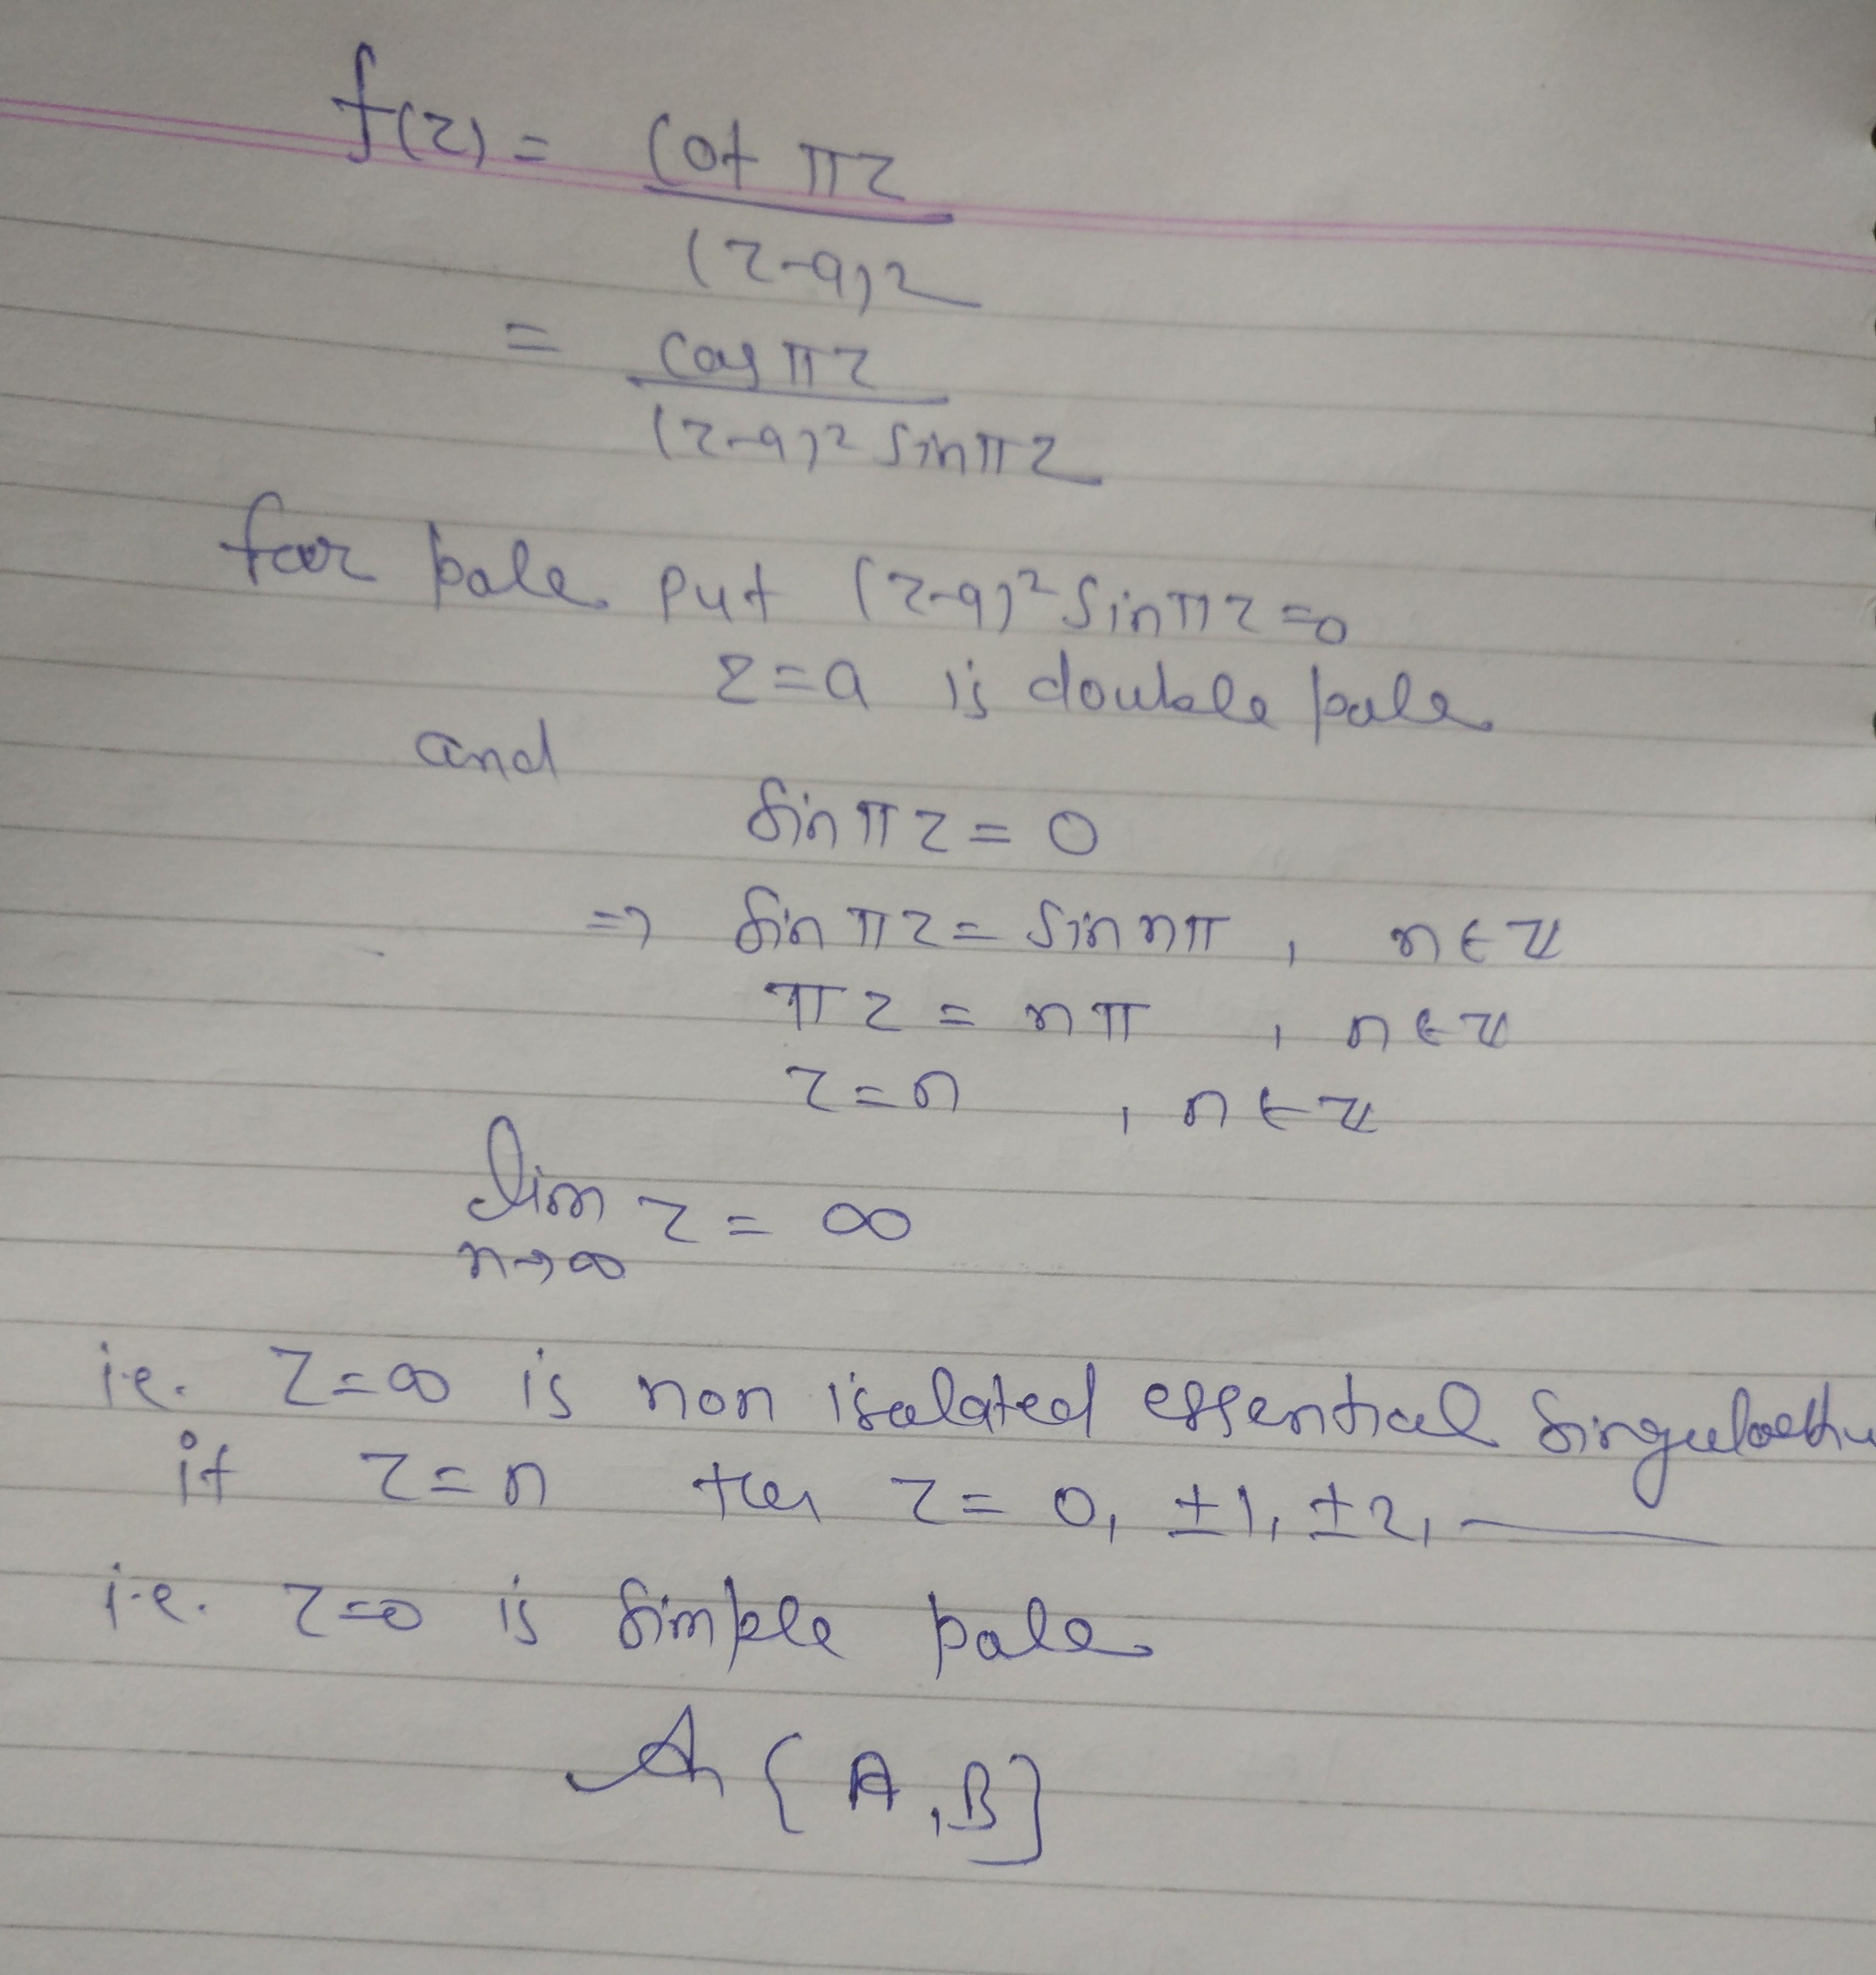 f(z) = cot πz
(z-a)2
= cos πz
(z-a)² sin πz
for pole put (z-a)² sin πz = 0
z = a is double pole
and
sin πz = 0
=> sin πz = sin nπ , n ∈ Z
πz = nπ , n ∈ Z
z = n , n ∈ Z
lim z = ∞
n→∞
i.e. z = ∞ is non isolated essential
if z = n then z = 0, ±1, ±2, —
i.e. z = 0 is simple pole
{A, B}